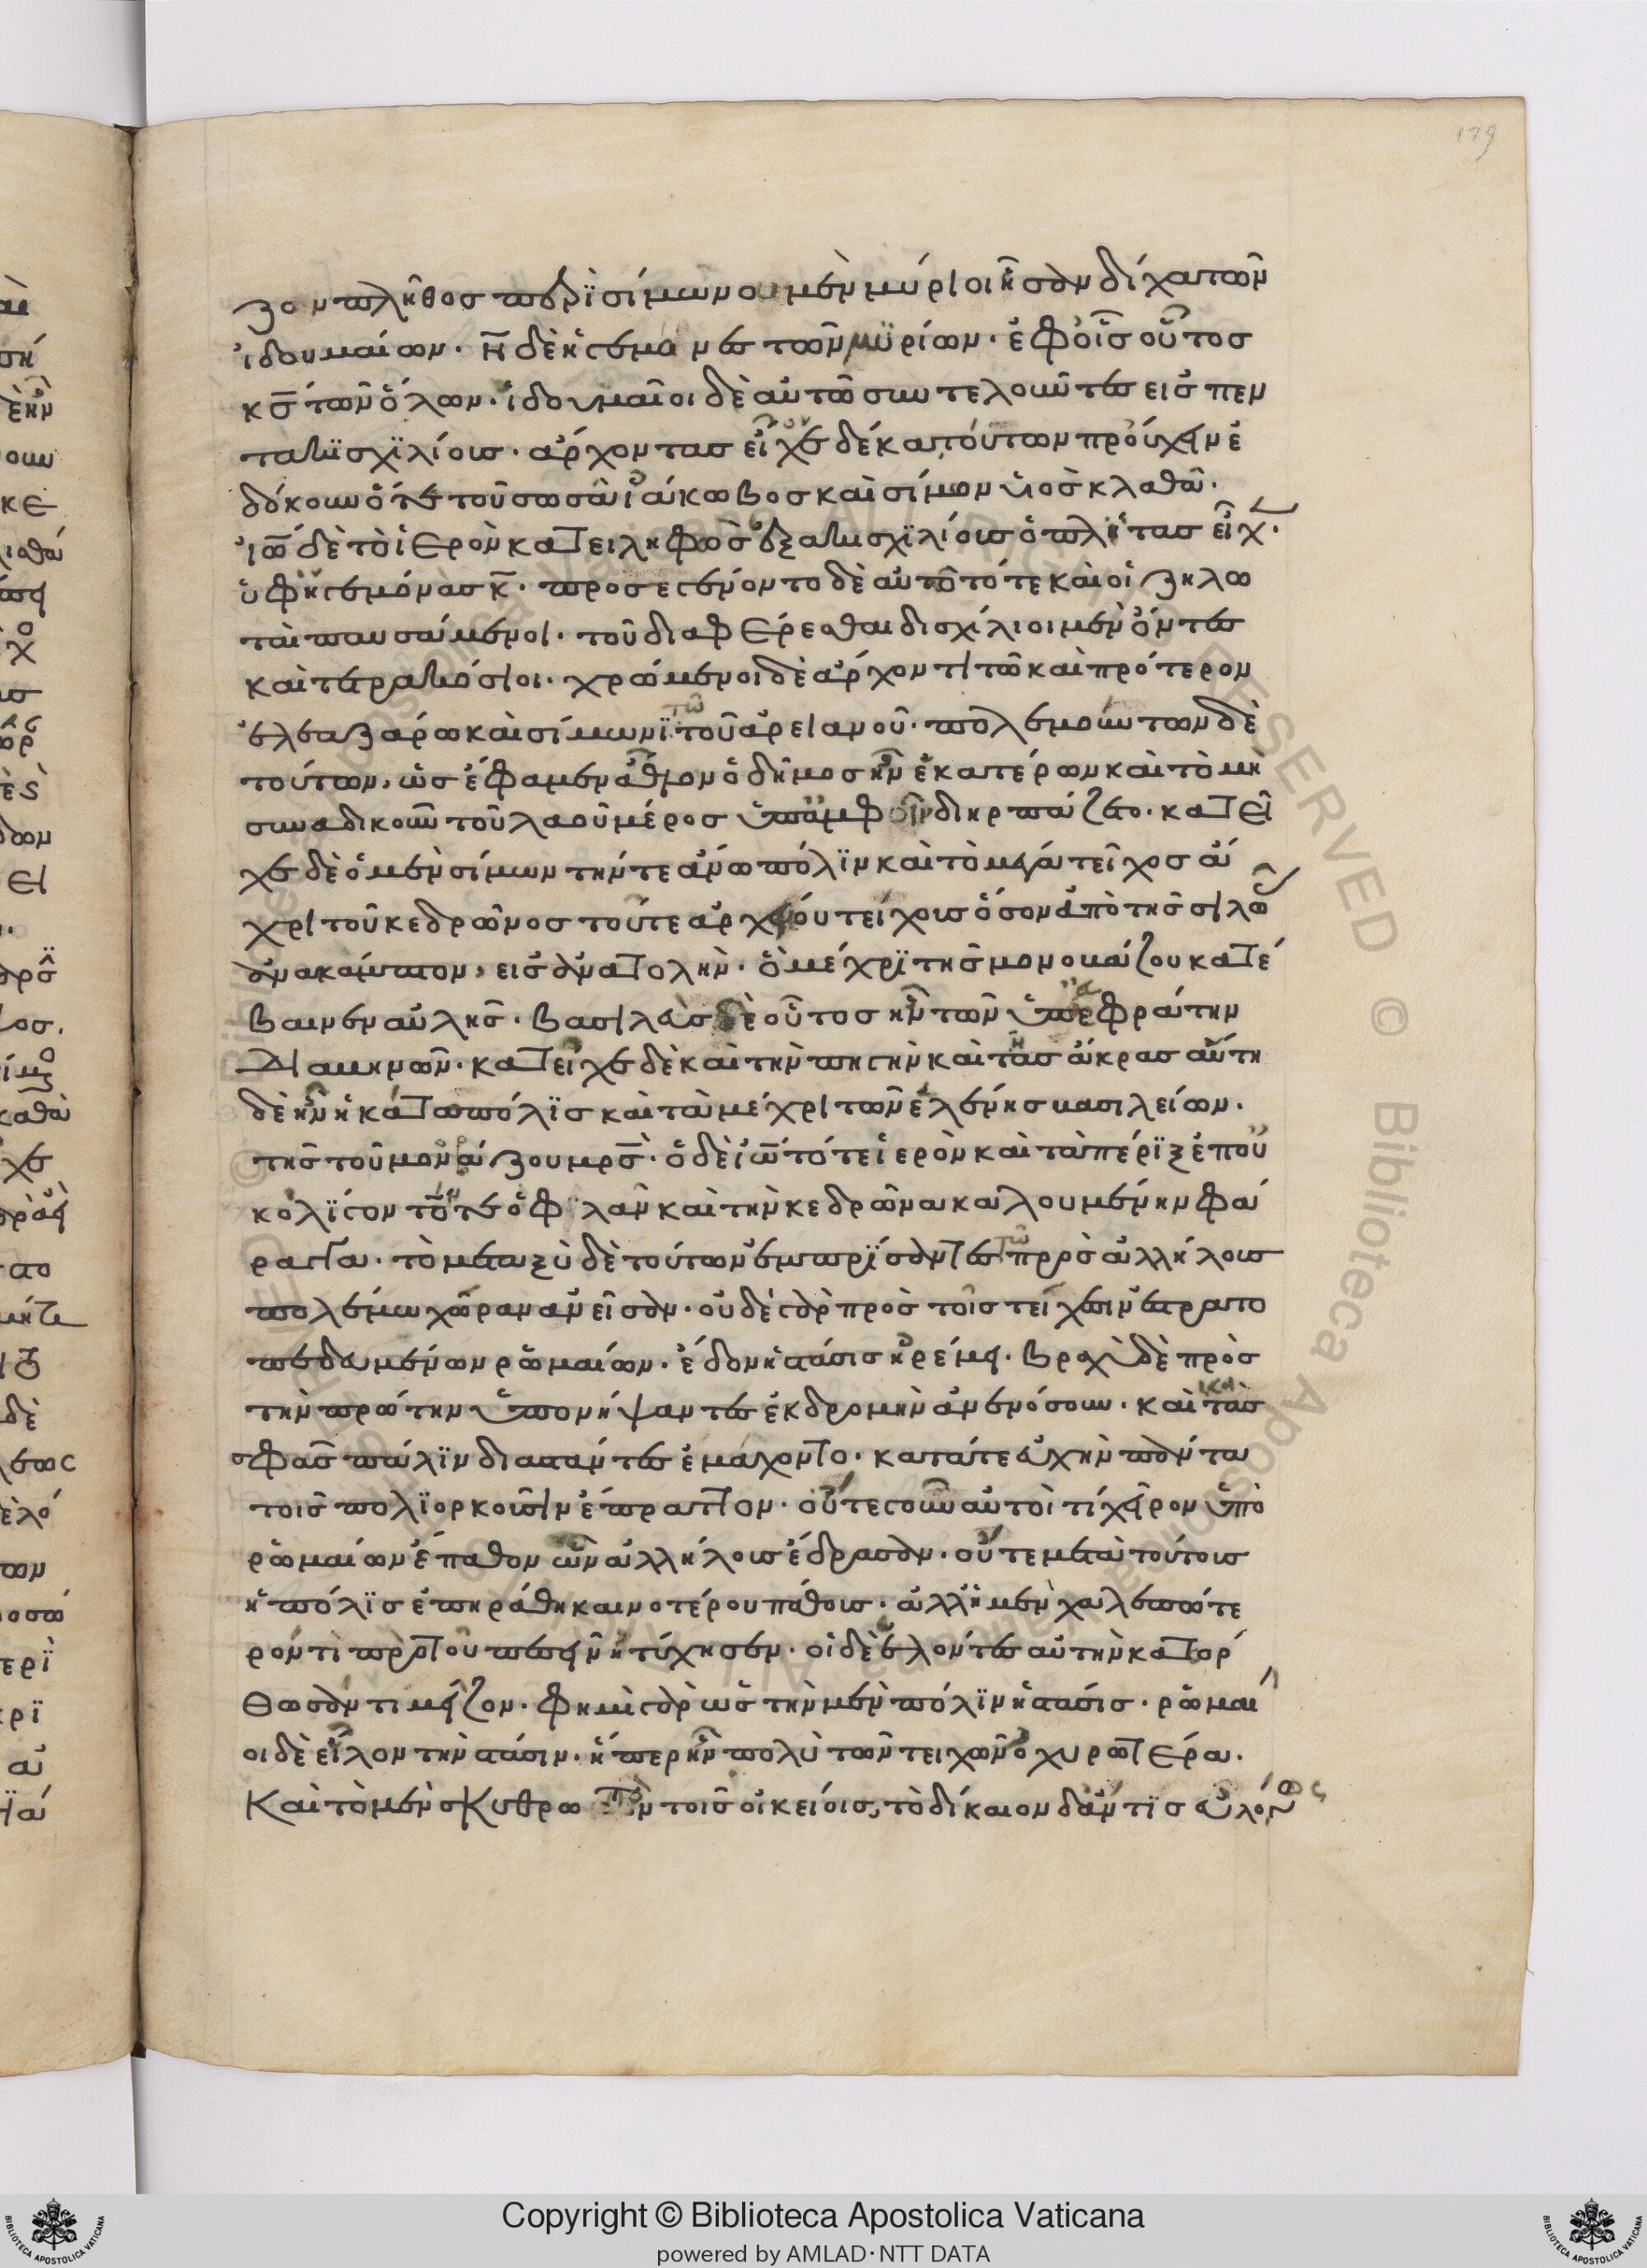 179
ζον πλῆθος περὶ σίμωνα μὲν μύριοι ἦσαν δίχα τῶν
ἰδουμαίων. ν̅ δὲ ἡγεμόνες τῶν μυρίων. ἐφ' οἷς οὗτος
κ̅ς̅ τῶν ὅλων. ἰδουμαῖοι δὲ αὐτῶ συντελοῦντες εἰς πεν
τακισχιλίους. ἄρχοντας εἶχον δέκα τούτων προύχειν ἐ
δόκουν ὅ τε τοῦ σωσᾶ ἰάκωβος καὶ σίμων υἱὸς κλαθᾶ.
ἰω̅ δὲ τὸ ἱερὸν κατειληφὼς ἑξακισχιλίους ὁπλίτας εἶχ.
ὑφ' ἡγεμόνας κ̅. προσεγένοντο δὲ αὐτῶ τότε καὶ οἱ ζηλω
ταὶ παυσάμενοι. τοῦ διαφέρεσθαι δισχίλιοι μὲν ὄντες
καὶ τετρακόσιοι. χρώμενοι δὲ ἄρχοντι τῶ καὶ πρότερον
ἐλεαζάρω καὶ σίμωνι τῶ τοῦ ἀρειανοῦ. πολεμούντων δὲ
τούτων, ὡς ἔφαμεν ἆθλον ὁ δῆμος ἦν ἑκατέρων καὶ τὸ μὴ
συναδικοῦν τοῦ λαοῦ μέρος ὑπ' ἀμφοῖν διηρπάζετο. κατεῖ
χε δὲ ὁ μὲν σίμων τήν τε ἄνω πόλιν καὶ τὸ μέγα τεῖχος ἄ
χρι τοῦ κεδρῶνος τού τε ἀρχαίου τείχους ὅσον ἀπὸ τῆς σιλωᾶ
ἀνακάμπτον, εἰς ἀνατολὴν. ὃ μέχρι τῆς μονοβάζου κατέ
βαινεν αὐλῆς. βασιλεὺς δὲ οὗτος ἦν τῶν ὑπὲρ εὐφράτην
ἀδιαβηνῶν. κατεῖχε δὲ καὶ τὴν πηγὴν καὶ τὰς ἄκρας αὕτη
δὲ ἦν ἡ κάτω πόλις καὶ τὰ μέχρι τῶν ἑλένης βασιλείων.
τῆς τοῦ μονοβάζου μρ̅ς̅. ὁ δὲ ἰω̅ τό τε ἱερὸν καὶ τὰ πέριξ ἐπ' οὐ
κ ὀλίγον τόν τε ὀφλᾶν καὶ τὴν κεδρῶνα καλουμένην φά
ραγγα. τὸ μεταξὺ δὲ τούτων ἐμπρήσαντες τῶ πρὸς ἀλλήλους
πολέμω χώραν ἀνεῖσαν. οὐδὲ γὰρ πρὸς τοῖς τείχεσιν ἐστρατο
πεδευμένων ῥωμαίων. ἔνδον ἡ στάσις ἠρέμει. βραχὺ δὲ πρὸς
τὴν πρώτην ὑπονήψαντες ἐκδρομὴν ἀνενόσουν. καὶ κατὰ
σφᾶς πάλιν διαστάντες ἐμάχοντο. κατά τε εὐχὴν πάντα
τοῖς πολιορκοῦσιν ἔπραττον. οὔτε γοῦν αὐτοί τι χεῖρον ὑπὸ
ῥωμαίων ἔπαθον ὧν ἀλλήλους ἔδρασαν. οὔτε μετὰ τούτους
ἡ πόλις ἐπειράθη καινοτέρου πάθους. ἀλλ' ἡ μὲν χαλεπώτε
ρόν τι πρὸ τοῦ πεσεῖν ἠτύχησεν. οἱ δὲ ἑλόντες αὐτὴν κατόρ
θωσάν τι μεῖζον. φημὶ γὰρ ὡς τὴν μὲν πόλιν ἡ στάσις. ῥωμαῖ
οι δὲ εἷλον τὴν στάσιν. ἥπερ ἦν πολὺ τῶν τειχῶν ὀχυρωτέρα.
Καὶ τὸ μὲν σκυθρωπὸν τοῖς οἰκείοις, τὸ δίκαιον δ' ἄν τις εὐλόγως
Copyright © Biblioteca Apostolica Vaticana
powered by AMLAD·NTT DATA